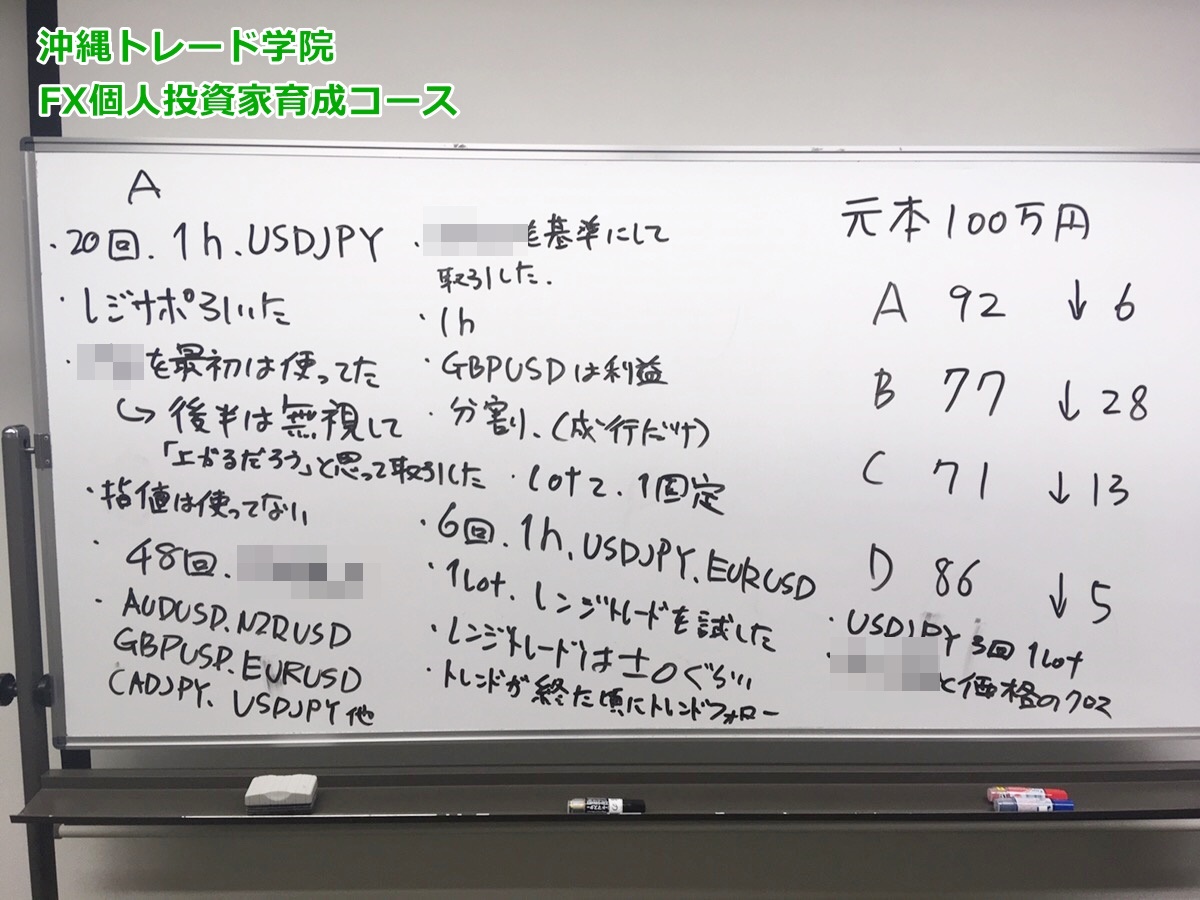 沖縄トレード学院
FX個人投資家育成コース
A
・20回.1h.USDJPY
・レジサポ引いた
・を最初は使ってた
↪後半は無視して
「上がるだろう」と思って取引した
・指値は使ってない
・48回.
・AUDUSD.NZDUSD
GBPUSD.EURUSD
CADJPY、USDJPY他
・を基準にして
取引した.
・1h
・GBPUSDは利益
・分割、(成行だけ)
・lot 2.1固定
・6回.1h、USDJPY、EURUSD
・1lot.レンジトレードを試した
・レンジトレードは±0ぐらい
・トレンドが終た頃にトレンドフォロー
元本100万円
A 92 ↓6
B 77 ↓28
C 71 ↓13
D 86 ↓5
・USDJPY 3回 1lot
・と価格のクロス